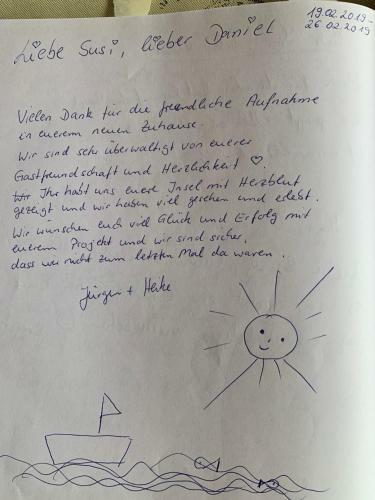 19.02.2019-
26.02.2019
Liebe Susi, lieber Daniel
Vielen Dank für die freundliche Aufnahme
in eurem neuen Zuhause.
Wir sind sehr überwältigt von eurer
Gastfreundschaft und Herzlichkeit ♡.
Wir Ihr habt uns eure Insel mit Herzblut
gezeigt und wir haben viel gesehen und erlebt.
Wir wünschen euch viel Glück und Erfolg mit
eurem Projekt und wir sind sicher,
dass wir nicht zum letzten Mal da waren.
Jürgen + Heike